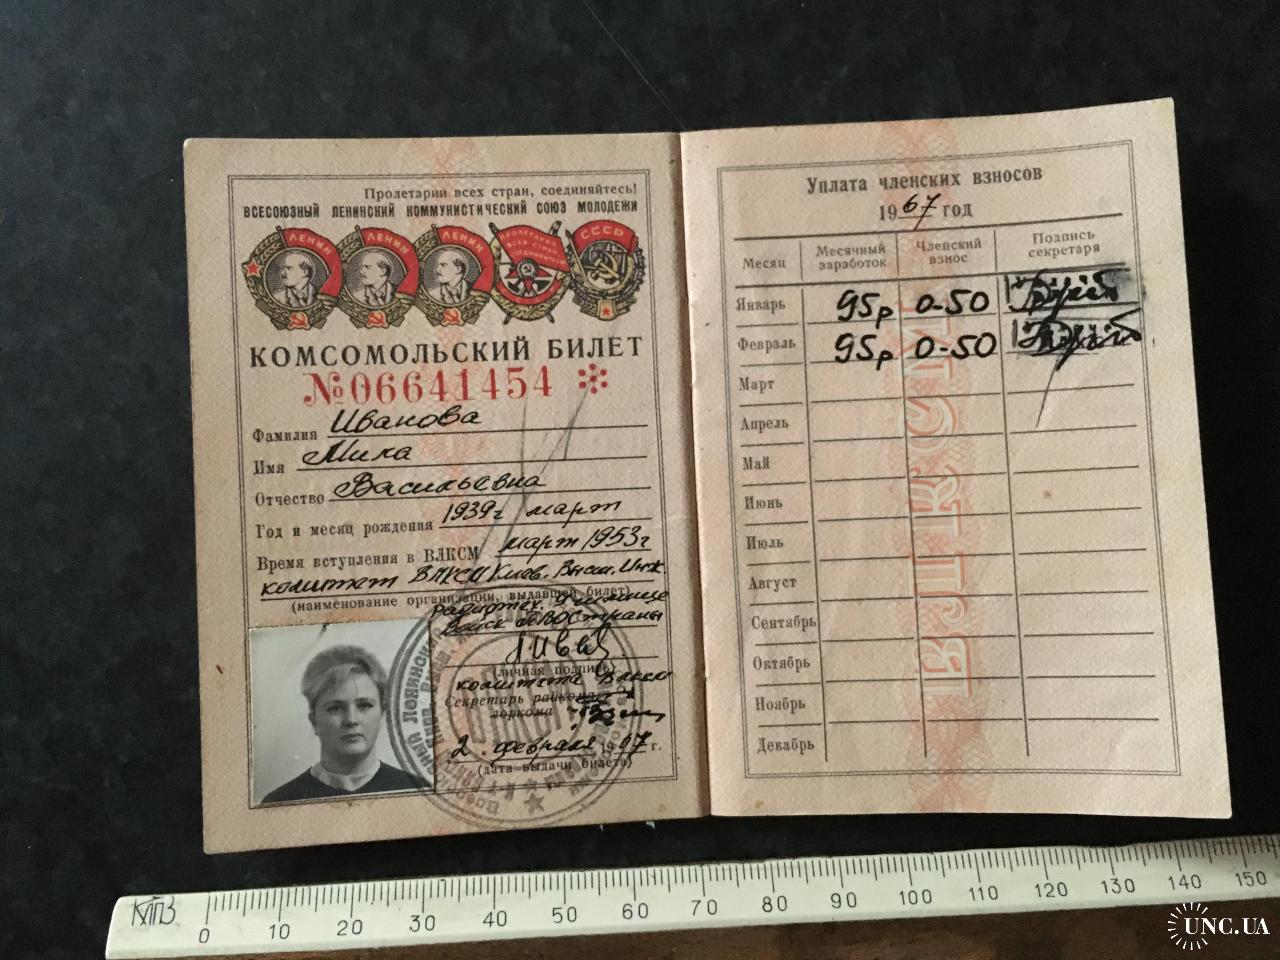 Пролетарии всех стран, соединяйтесь!
ВСЕСОЮЗНЫЙ ЛЕНИНСКИЙ КОММУНИСТИЧЕСКИЙ СОЮЗ МОЛОДЕЖИ
ЛЕНИН ЛЕНИН ЛЕНИН СССР
КОМСОМОЛЬСКИЙ БИЛЕТ
№06641454
Фамилия Иванова
Имя Мила
Отчество Васильевна
Год и месяц рождения 1939г март
Время вступления в ВЛКСМ март 1953г
комитет ВЛКСМ Киев. Высш. Инж.
(наименование организации, выдавшей билет)
радиотех. Училище
Войск ПВО Страны
(личная подпись)
комитета ВЛКСМ
Секретарь райкома
горкома
2. февраля 1967 г.
(дата выдачи билета)
Уплата членских взносов
1967 год
Месяц Месячный заработок Членский взнос Подпись секретаря
Январь 95р 0-50
Февраль 95р 0-50
Март
Апрель
Май
Июнь
Июль
Август
Сентябрь
Октябрь
Ноябрь
Декабрь
ВЛКСМ
0 10 20 30 40 50 60 70 80 90 100 110 120 130 140 150
UNC.UA